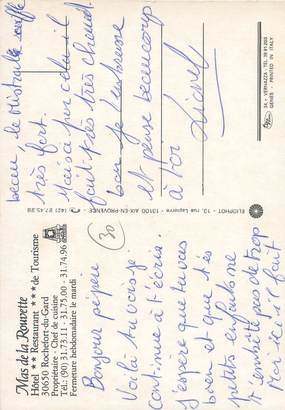 Mas de la Rouvette
Hôtel ** Restaurant *** de Tourisme
30650 Rochefort-du-Gard
Propriétaire - Chef de cuisine
Tél.: (90) 31.73.11 - 31.75.00 - 31.74.96
Fermeture hebdomadaire le mardi
30
Bonjour pépère
Voilà tu vois je
continue à t'écrire.
J'espère que tu vas
bien et que tes
petits enfants ne
t'embête pas de trop
Ici il fait
beau, le Mistrale souffle
très fort.
Mais a par cela il
fait très très chaud.
bon je
et pense beaucoup
à toi
Lionel
ELIOPHOT - 13, rue Lapierre - 13100 AIX-EN-PROVENCE -
S.A. - VERNAZZA - TEL.
GENES - PRINTED IN ITALY